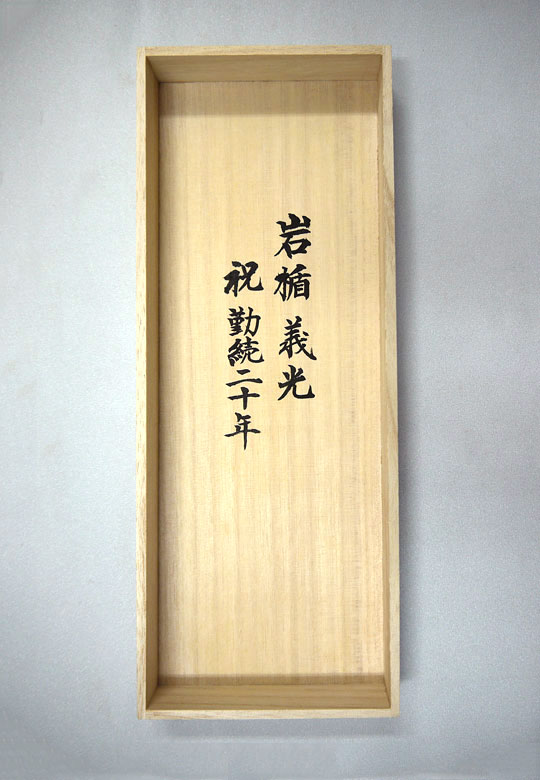 岩楯 義光
祝 勤続二十年